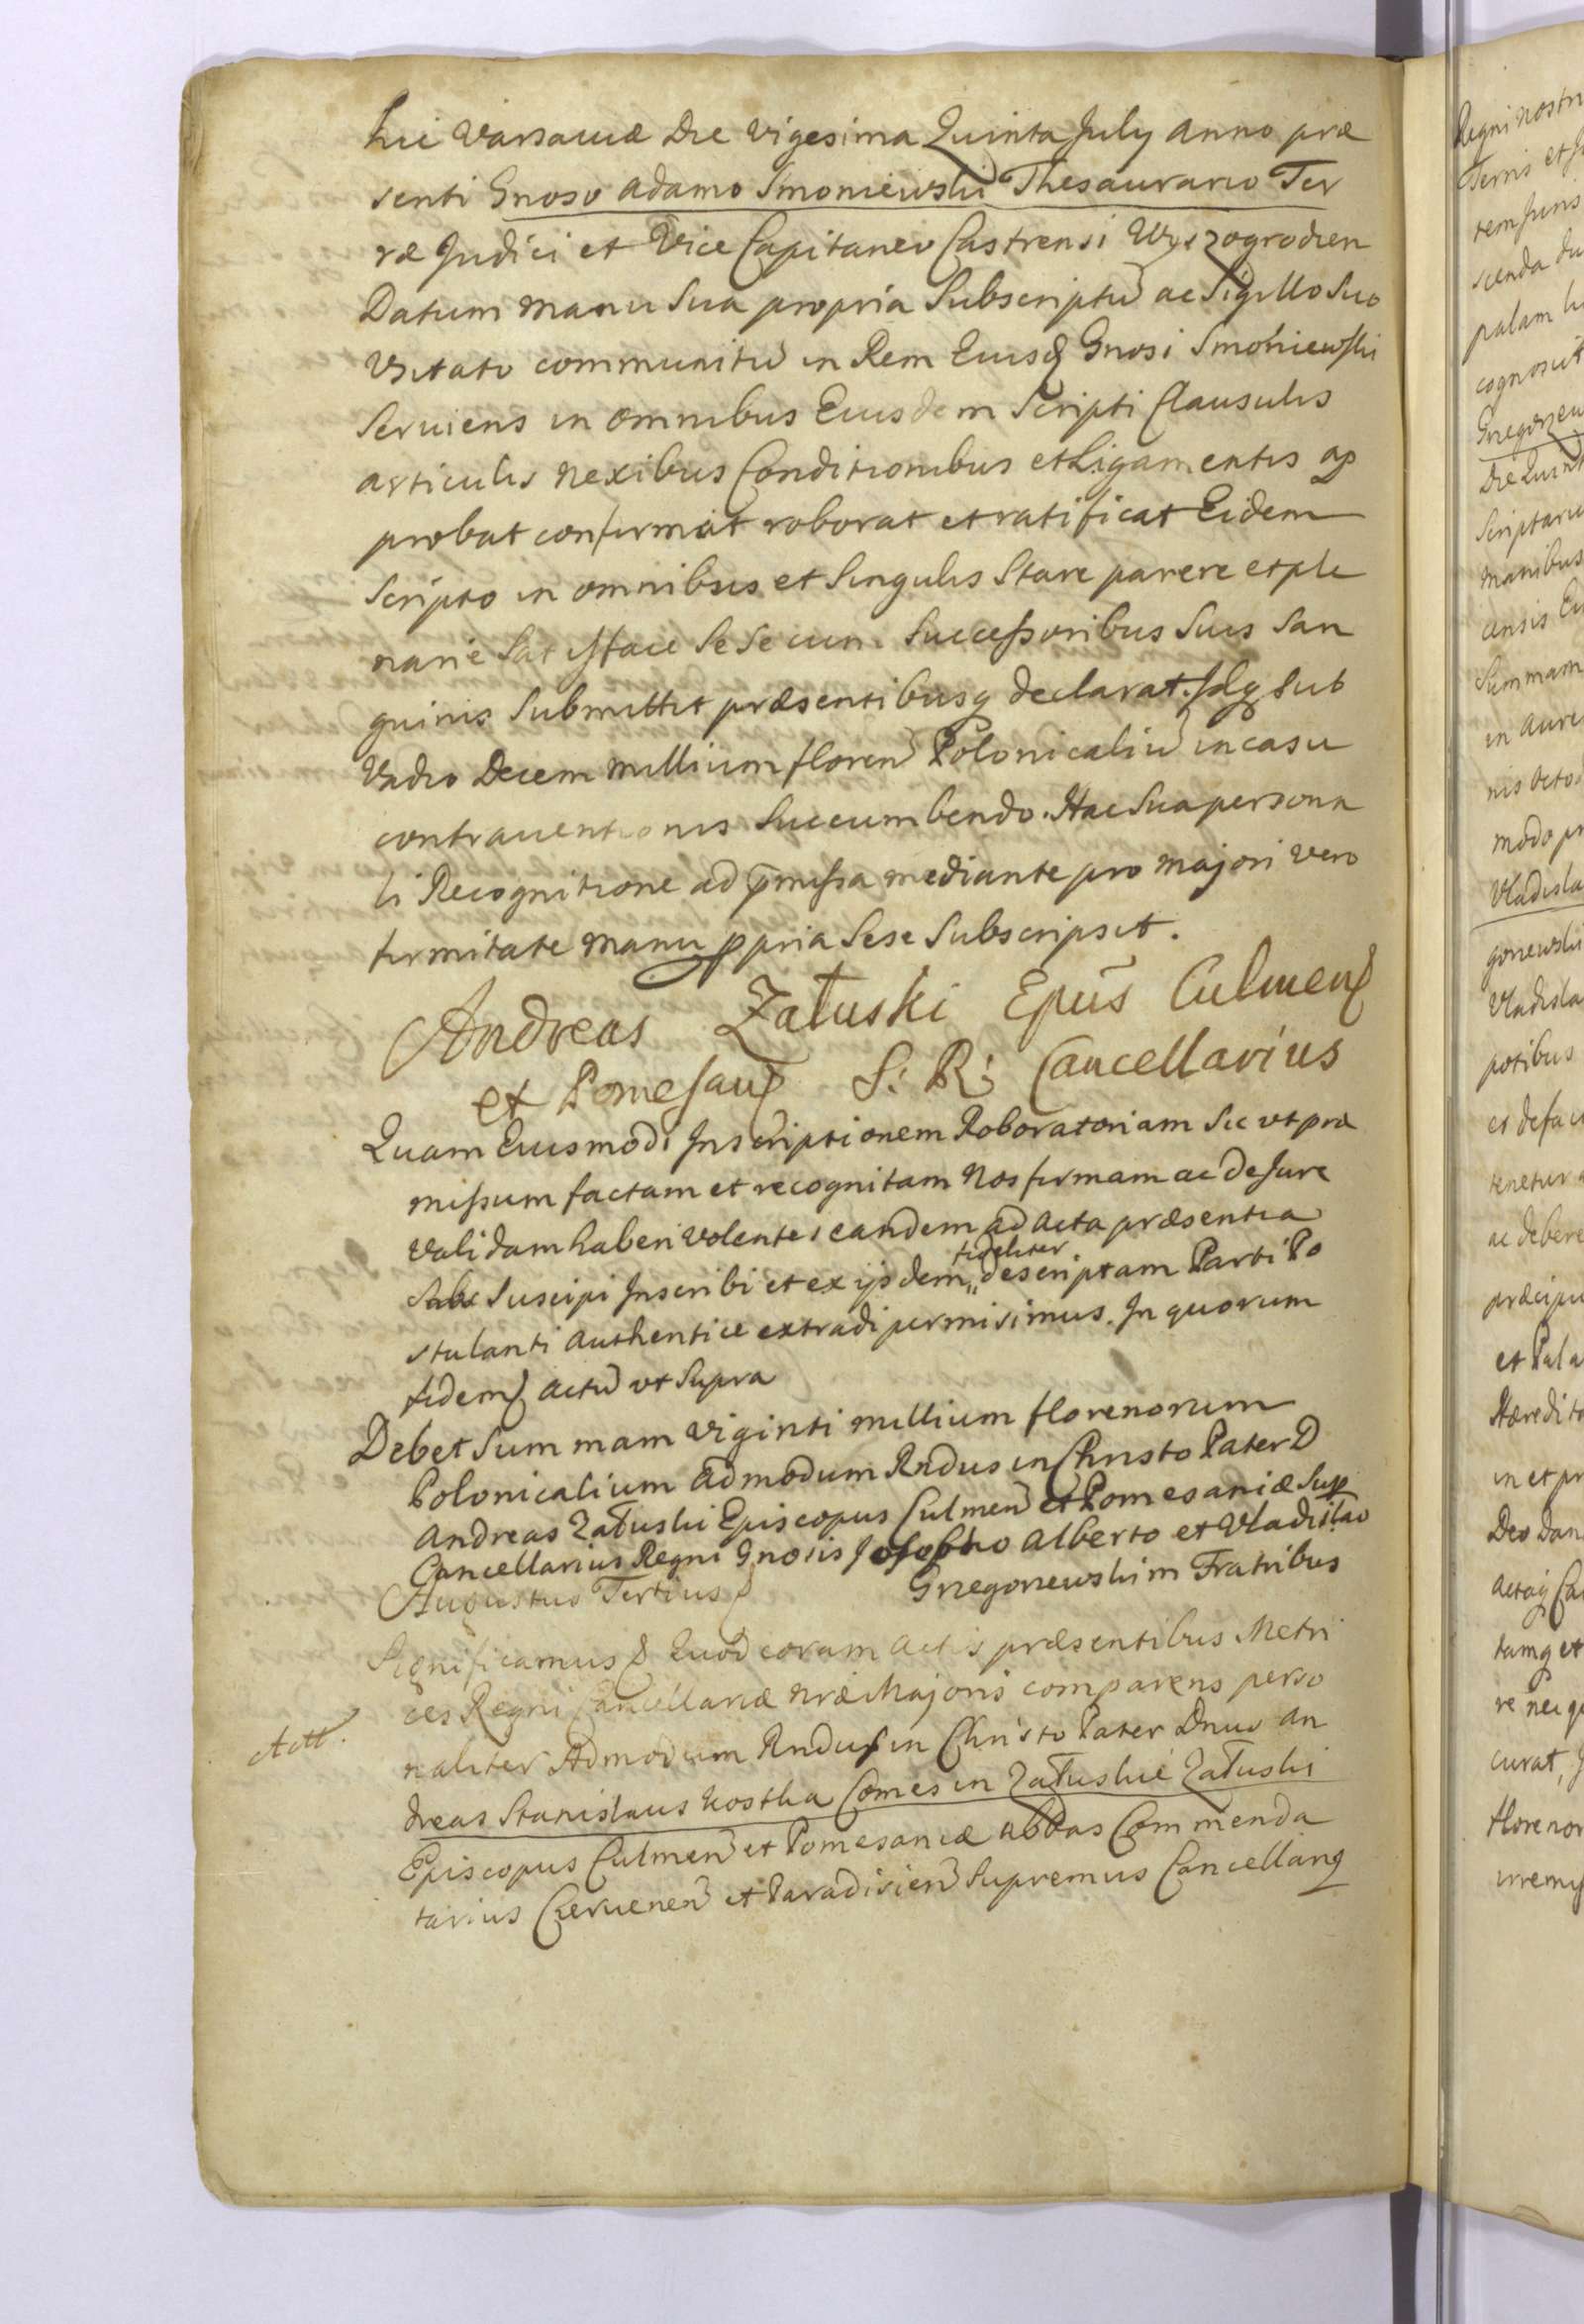 hic Varsaviæ Die Vigesima Quinta July anno præ
senti Gnoso Adamo Smoniewski Thesaurario Ter
ræ Judici et Vice Capitaneo Castrensi Wyszogrodien
Datum manu Sua propria Subscriptũ ac Sigillo Suo
Usitato communitũ in Rem Eiusq Gnosi Smoniewski
Serviens in omnibus Eiusdem Scripti Clausulis
articulis nexibus Conditionibus et Ligamentis ap
probat confirmat roborat et ratificat Eidem
Scripto in omnibus et Singulis Stare parere et ple
narie Satisface Se Se cum Successoribus Suis San
guinis Submittit præsentibusq declarat. Idq sub
Vadio Decem millium floren Polonicaliũ in casu
contraventionis Succumbendo. Hac Sua persona
li Recognitione ad pmissa mediante pro majori vero
firmitate manu ppria Sese Subscripsit.
Andreas Załuski Epũs Culmens
et Pomesans S: R: Cancellarius
Quam Eiusmodi Inscriptionem Roboratoriam Sic ut præ
missum factam et recognitam Nos firmam ac de Jure
validam haberi volentes eandem ad acta præsentia
Suscipi Inscribi et ex ijsdem fideliter descriptam Parti Po
stulanti authentice extradi permisimus. In quorum
fidem actũ ut Supra
Debet Summam Viginti millium florenorum
Polonicalium admodum Rndus in Christo Pater D
Andreas Załuski Episcopus Culmen et Pomesaniæ Sup
Cancellarius Regni Gnosis Josepho Alberto et Vladislao
Grzegorzewskim Fratribus
Augustus Tertius
Significamus Quod coram Actis præsentibus Metri
ces Regni Cancellariæ nræ Majoris comparens perso
naliter Admodum Rndus in Christo Pater Dnus An
Att.
dreas Stanislaus Kostka Comes in Załuskie Załuski
Episcopus Culmen et Pomesaniæ abbas Commenda
tarius Czerwenen et Paradisien Supremus Cancellariq
Regni nostri
Terris et
rem Juris
scenda
palam
cognoscit
Grzegorzew
Die Quint
Scriptaru
manibus
censis
Summam
in aure
nis octo
modo
Vladisla
gorzewski
Vladisla
potibus
et defa
tenetur
ac debere
præcipu
et Pala
Hæredita
in et pr
Deo dan
actaq Ca
tamq et
re neq
curat,
floreno